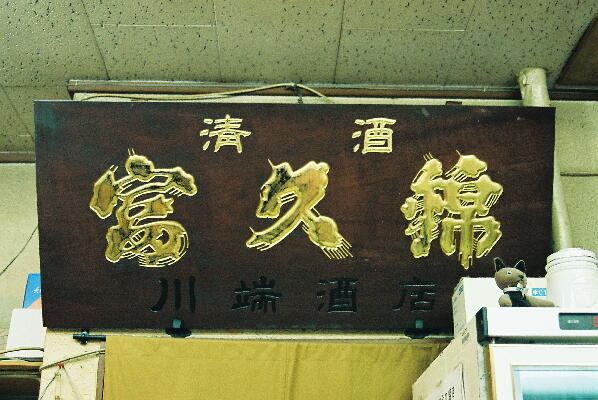 清酒
富久錦
川端酒店